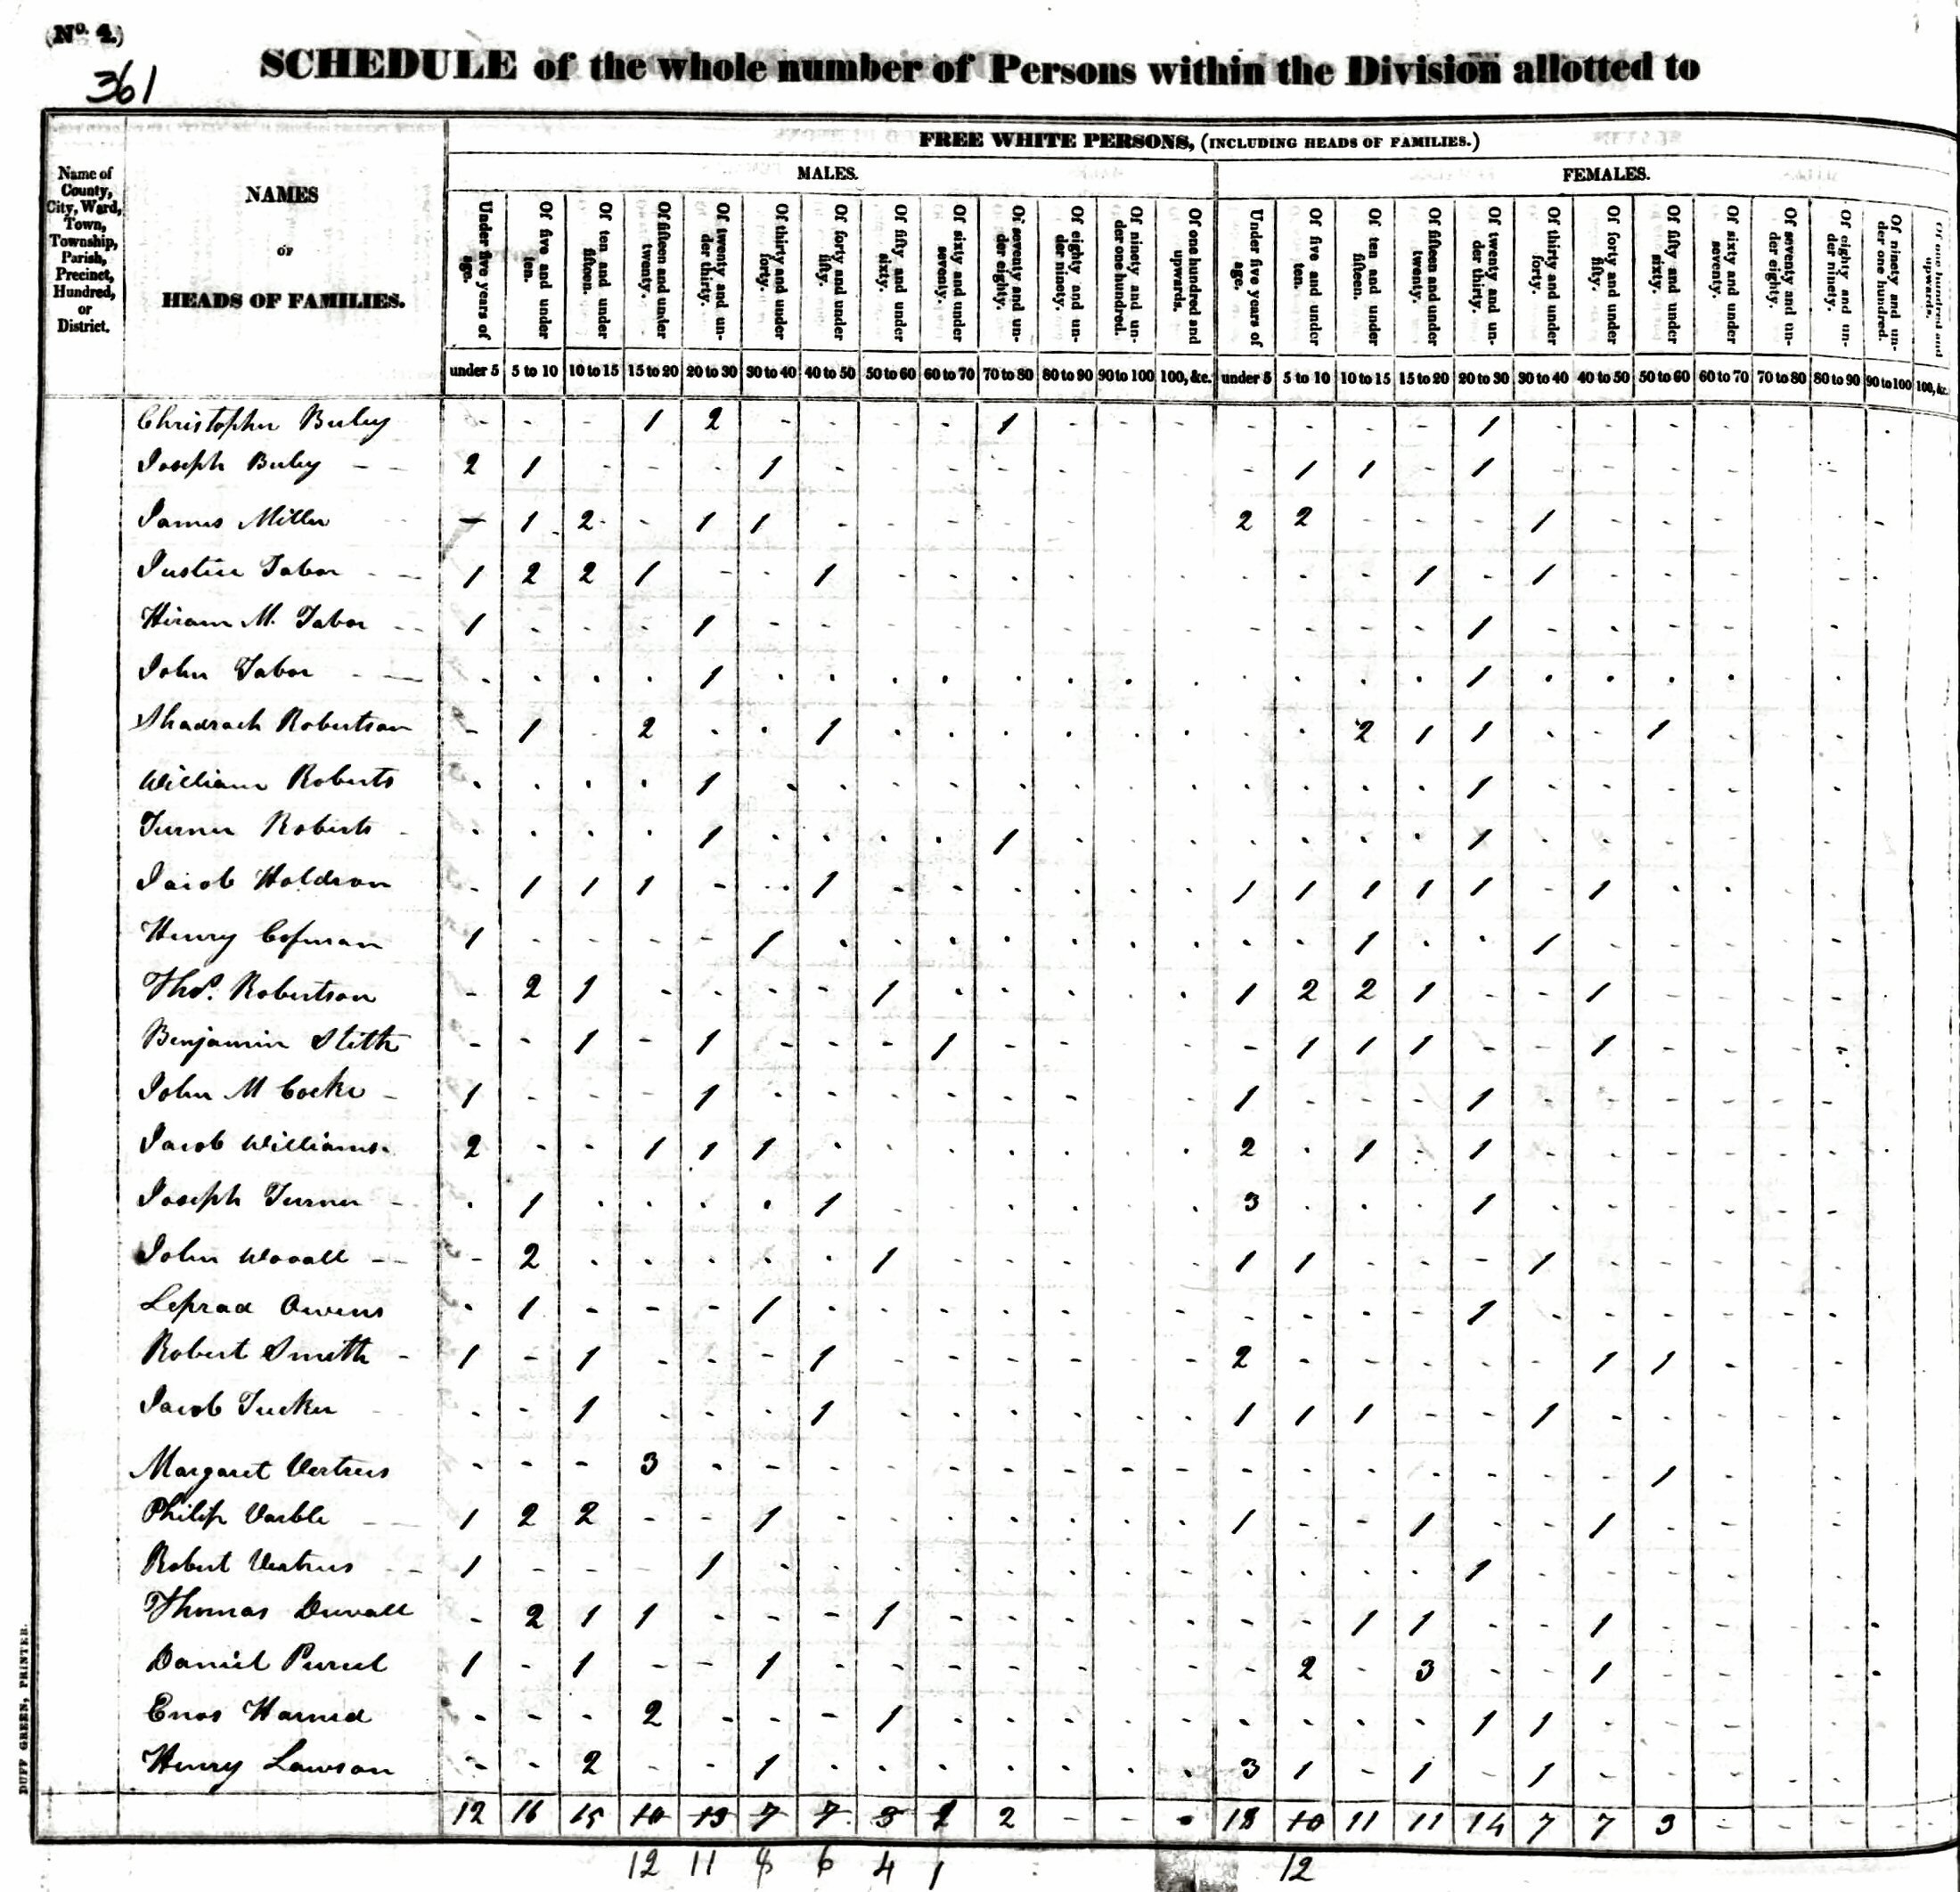 (No. 4.)
361
SCHEDULE of the whole number of Persons within the Division allotted to
FREE WHITE PERSONS, (INCLUDING HEADS OF FAMILIES.)
MALES. FEMALES.
Name of County, City, Ward, Town, Township, Parish, Precinct, Hundred, or District.
NAMES
OF
HEADS OF FAMILIES.
Under five years of age.
Of five and under ten.
Of ten and under fifteen.
Of fifteen and under twenty.
Of twenty and under thirty.
Of thirty and under forty.
Of forty and under fifty.
Of fifty and under sixty.
Of sixty and under seventy.
Of seventy and under eighty.
Of eighty and under ninety.
Of ninety and under one hundred.
Of one hundred and upwards.
Under five years of age.
Of five and under ten.
Of ten and under fifteen.
Of fifteen and under twenty.
Of twenty and under thirty.
Of thirty and under forty.
Of forty and under fifty.
Of fifty and under sixty.
Of sixty and under seventy.
Of seventy and under eighty.
Of eighty and under ninety.
Of ninety and under one hundred.
Of one hundred and upwards.
under 5 5 to 10 10 to 15 15 to 20 20 to 30 30 to 40 40 to 50 50 to 60 60 to 70 70 to 80 80 to 90 90 to 100 100, &c. under 5 5 to 10 10 to 15 15 to 20 20 to 30 30 to 40 40 to 50 50 to 60 60 to 70 70 to 80 80 to 90 90 to 100 100, &c.
Christopher 1 2 1 1
Joseph 2 1 1 1 1 1
James Miller 1 2 1 1 2 2 1
Justice Tabor 1 2 2 1 1 1 1
Hiram M. Tabor 1 1 1
John Tabor 1 1
Shadrach Robertson 1 2 1 2 1 1 1
William Roberts 1 1
Turner Roberts 1 1 1
Jacob Holdron 1 1 1 1 1 1 1 1 1 1
Henry Cofman 1 1 1 1
Thos. Robertson 2 1 1 1 2 2 1 1
Benjamin Stith 1 1 1 1 1 1 1
John M Cocke 1 1 1 1
Jacob Williams 2 1 1 1 2 1 1
Joseph Turner 1 1 3 1
John Wooall 2 1 1 1 1
Owens 1 1 1
Robert Smith 1 1 1 2 1 1
Jacob Tucker 1 1 1 1 1 1
Margaret Vertrees 3 1
Philip Varble 1 2 2 1 1 1 1
Robert Vertrees 1 1 1
Thomas Duvall 2 1 1 1 1 1 1
Daniel Purcel 1 1 1 2 3 1
Enos Harned 2 1 1 1
Henry Lawson 2 1 3 1 1 1
12 16 15 10 13 7 7 3 2 2 18 10 11 11 14 7 7 3
12 11 8 6 4 1 12
DUFF GREEN, PRINTER.